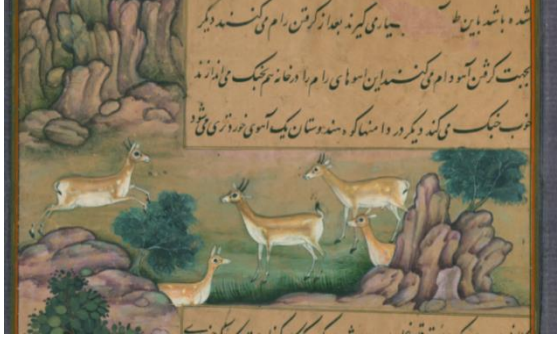 شده باشد باین بسیاری گیرند بعد از گرفتن رام می کنند دیگر
بجهت گرفتن آهو دام می کنند این آهوهای رام را در خانه هم بجنگ می اندازند
خوب جنگ می کند دیگر در دامنهای کوه هندوستان یک آهوی خوردتری می شود